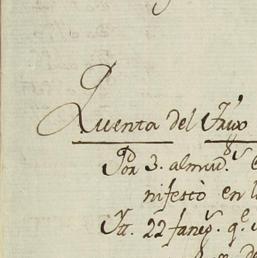 Quenta del Trigo
Por 3. almud.s
nifestò en l
Yt. 22 faneg.s q.e